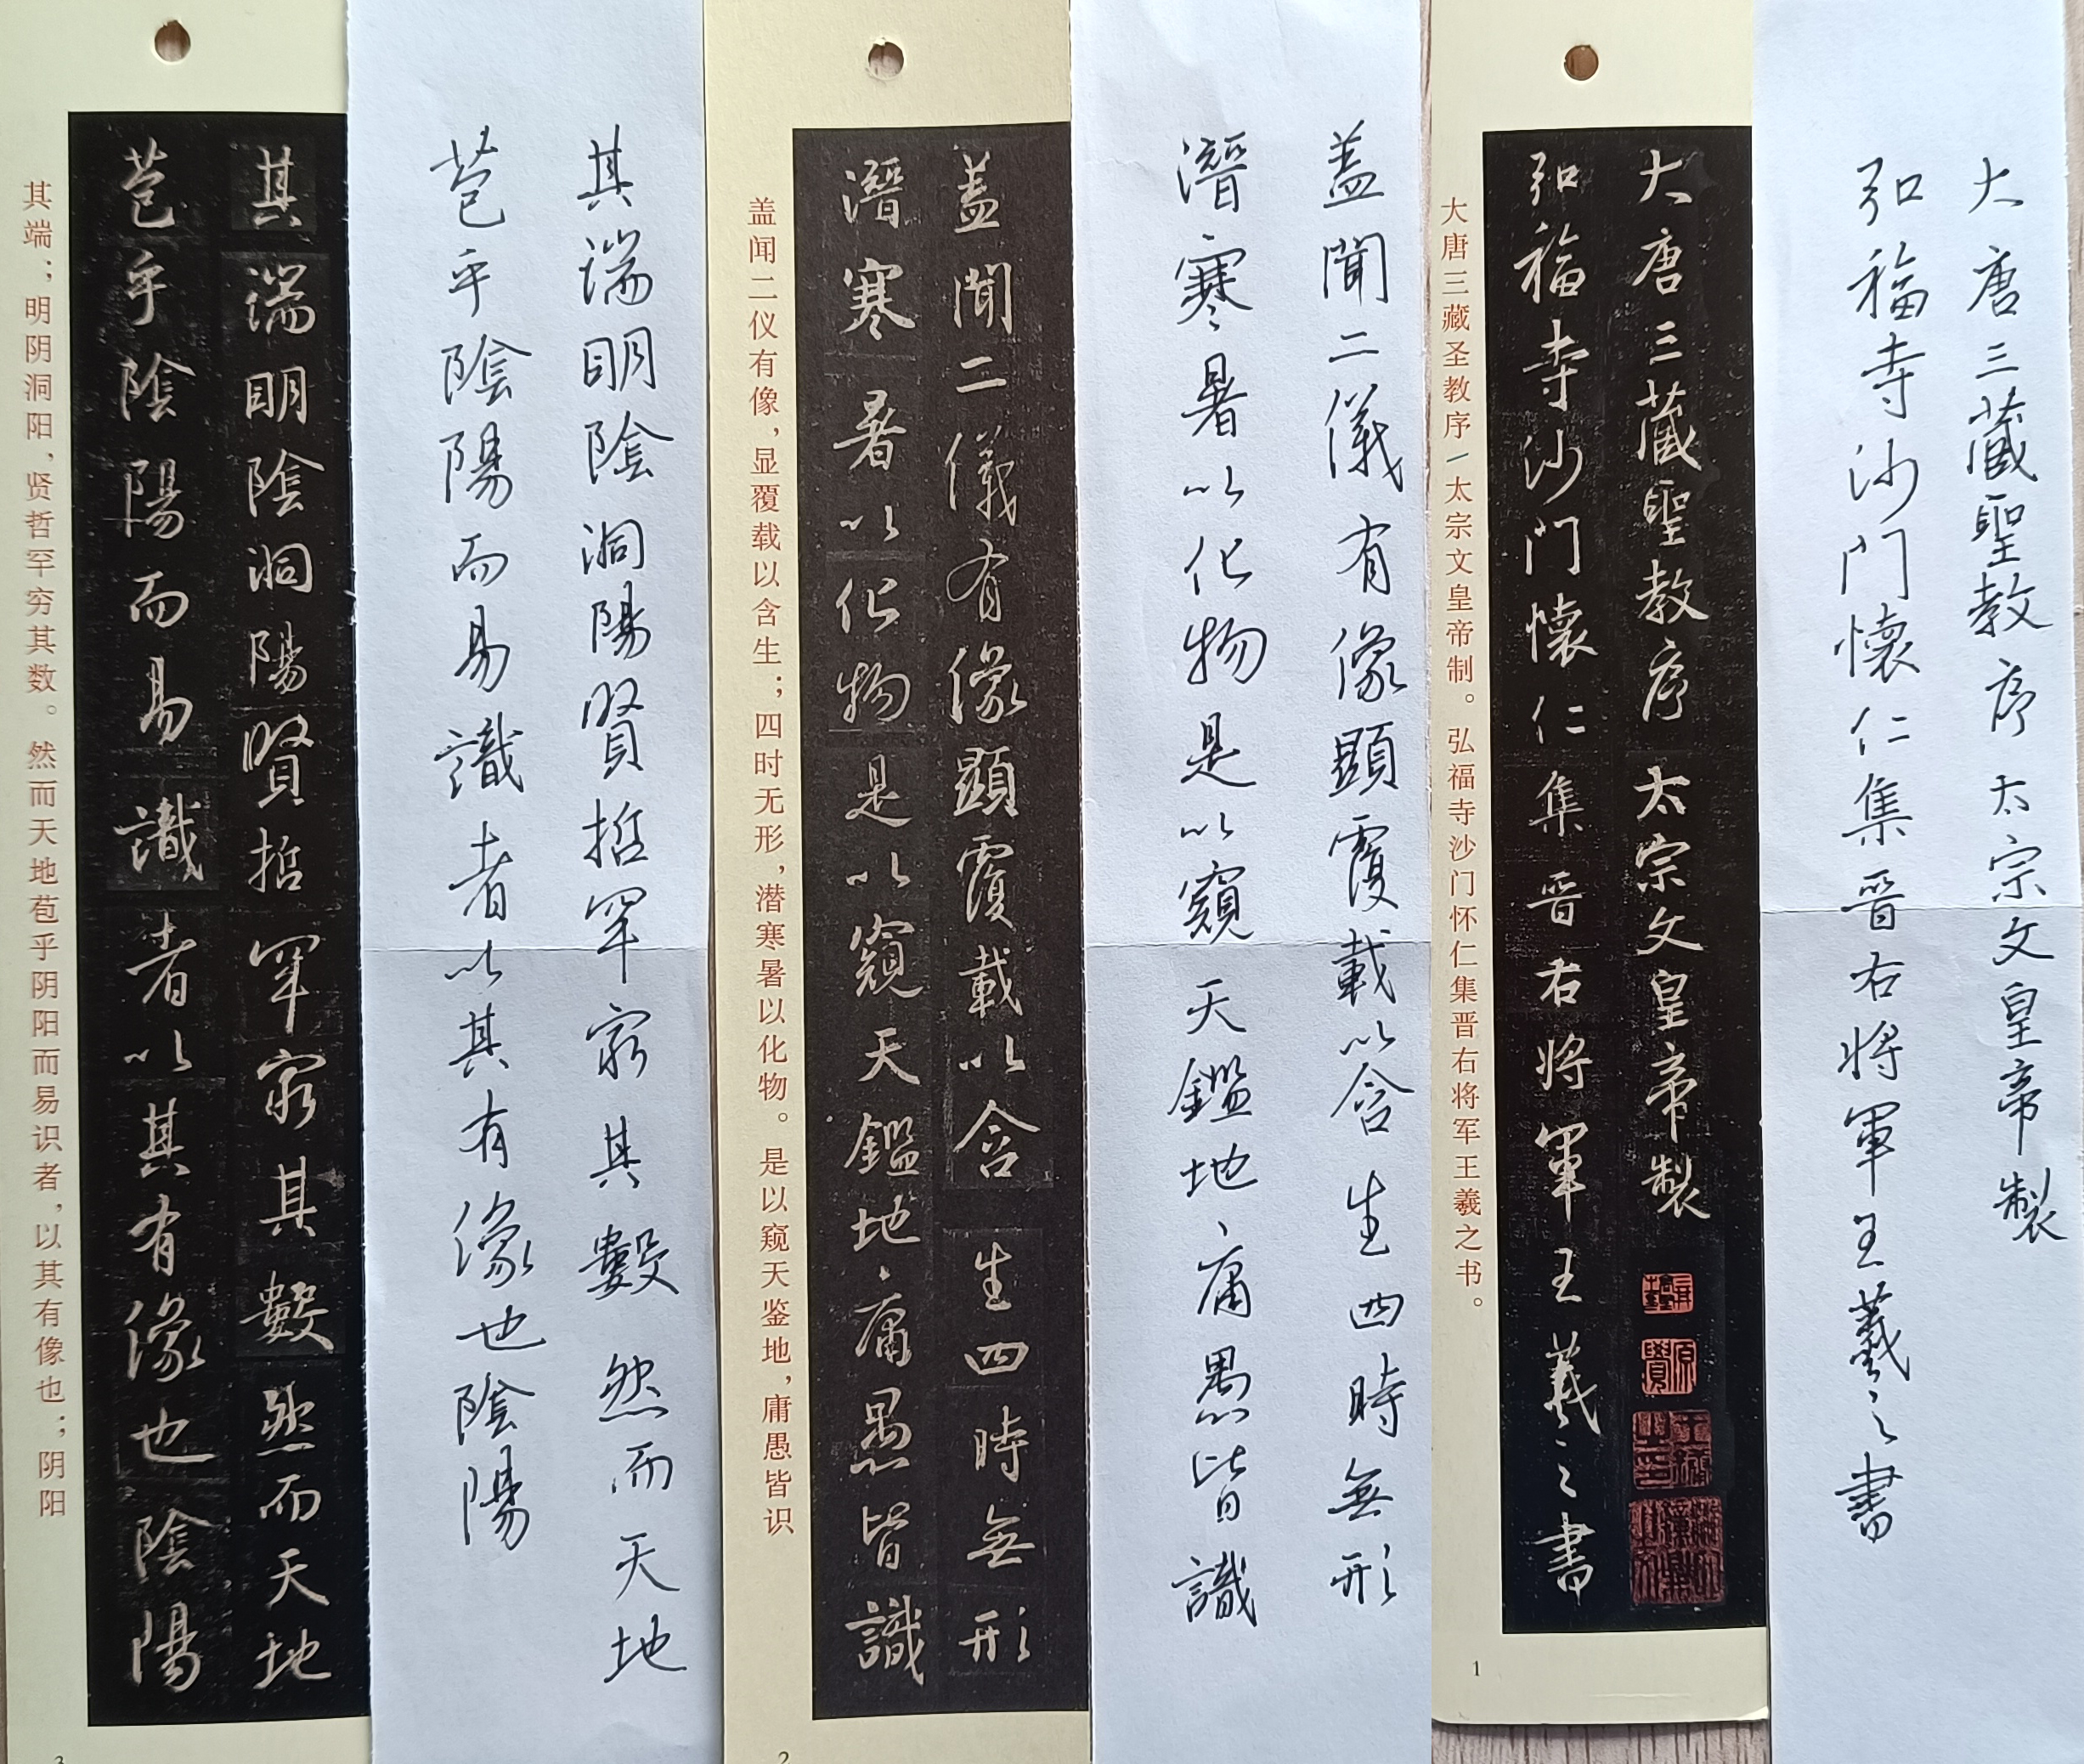 大唐三藏聖教序 太宗文皇帝製
弘福寺沙門懷仁集晉右将軍王羲之書
大唐三藏聖教序 太宗文皇帝製
弘福寺沙門懷仁集晉右将軍王羲之書
大唐三藏圣教序/太宗文皇帝制。弘福寺沙门怀仁集晋右将军王羲之书。
1
盖聞二儀有像顯覆載以含生四時無形
潛寒暑以化物是以窺天鑑地庸愚皆識
盖聞二儀有像顯覆載以含生四時無形
潛寒暑以化物是以窺天鑑地庸愚皆識
盖闻二仪有像,显覆载以含生;四时无形,潜寒暑以化物。是以窥天鉴地,庸愚皆识
2
其端明陰洞陽賢哲罕窮其數然而天地
苞乎陰陽而易識者以其有像也陰陽
其端明陰洞陽賢哲罕窮其數然而天地
苞乎陰陽而易識者以其有像也陰陽
其端;明阴洞阳,贤哲罕穷其数。然而天地苞乎阴阳而易识者,以其有像也;阴阳
3